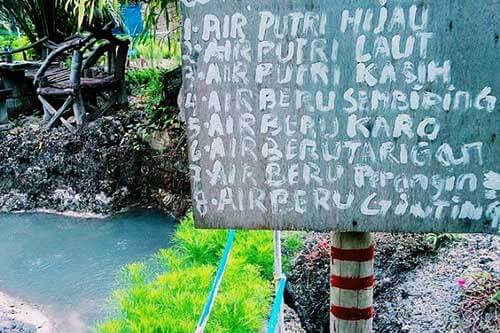 1. AIR PUTRI HIJAU
2. AIR PUTRI LAUT
3. AIR PUTRI KASIH
4. AIR BERU SEMBIRING
5. AIR BERU KARO
6. AIR BERU TARIGAN
7. AIR BERU Perangin
8. AIR BERU Ginting